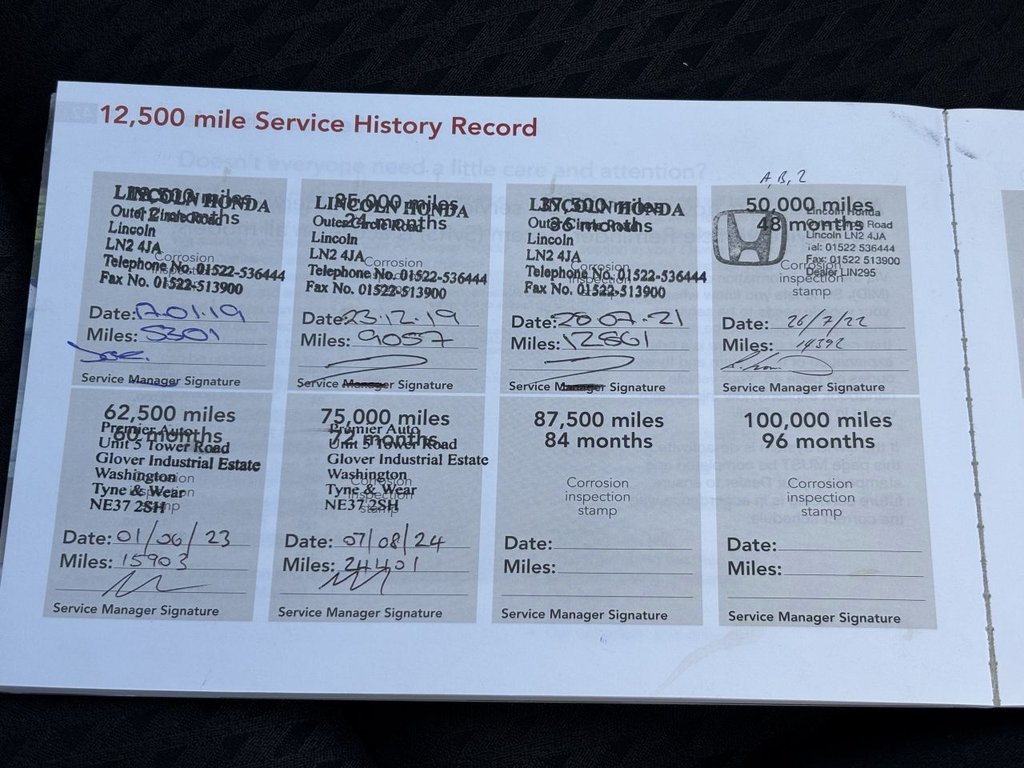 12,500 mile Service History Record
12,500 miles
12 months
LINCOLN HONDA
Outer Circle Road
Lincoln
LN2 4JA
Corrosion
Telephone No. 01522-536444
Fax No. 01522-513900
Date: 17.01.19
Miles: 5301
Service Manager Signature
25,000 miles
24 months
LINCOLN HONDA
Outer Circle Road
Lincoln
LN2 4JA
Corrosion
Telephone No. 01522-536444
Fax No. 01522-513900
Date: 23.12.19
Miles: 9057
Service Manager Signature
37,500 miles
36 months
LINCOLN HONDA
Outer Circle Road
Lincoln
LN2 4JA
Corrosion
Telephone No. 01522-536444
Fax No. 01522-513900
Date: 28.07.21
Miles: 12861
Service Manager Signature
A, B, 2
50,000 miles
48 months
Lincoln Honda
Road
Lincoln LN2 4JA
Tel: 01522 536444
Fax: 01522 513900
Dealer LIN295
Corrosion
inspection
stamp
Date: 26/7/22
Miles: 14392
Service Manager Signature
62,500 miles
60 months
Premier Auto
Unit 5 Tower Road
Glover Industrial Estate
Washington
Tyne & Wear
NE37 2SH
Corrosion
inspection
stamp
Date: 01/06/23
Miles: 15903
Service Manager Signature
75,000 miles
72 months
Premier Auto
Unit 5 Tower Road
Glover Industrial Estate
Washington
Tyne & Wear
NE37 2SH
Corrosion
inspection
stamp
Date: 07/08/24
Miles: 24401
Service Manager Signature
87,500 miles
84 months
Corrosion
inspection
stamp
Date:
Miles:
Service Manager Signature
100,000 miles
96 months
Corrosion
inspection
stamp
Date:
Miles:
Service Manager Signature